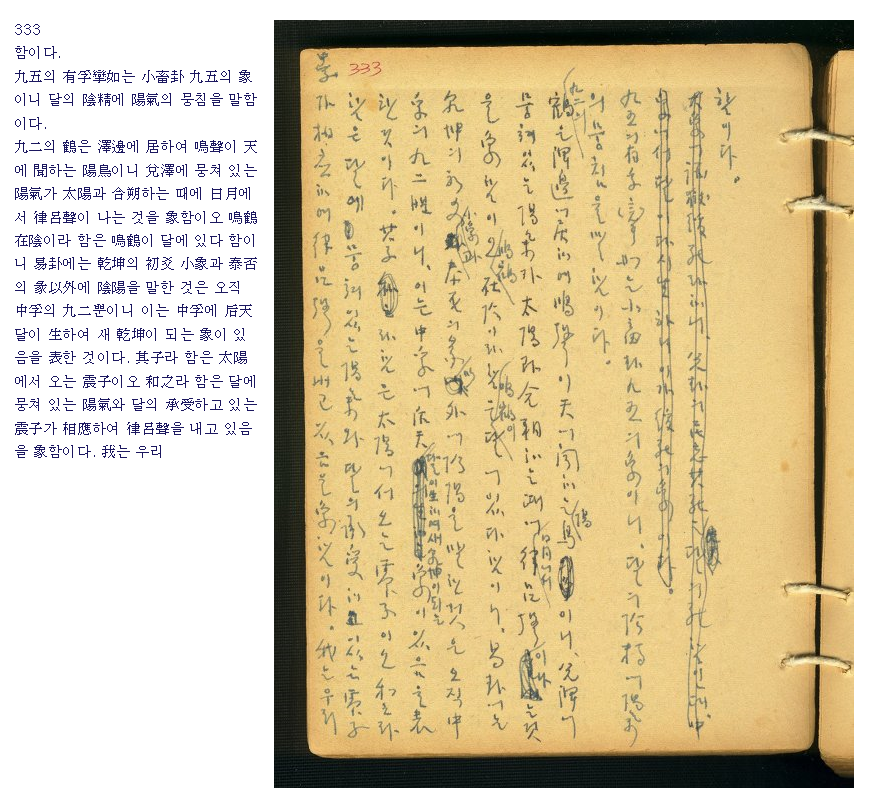 333
함이다.
九五의 有孚攣如는 小畜卦 九五의 象
이니 달의 陰精에 陽氣의 뭉침을 말함
이다.
九二의 鶴은 澤邊에 居하여 鳴聲이 天
에 聞하는 陽鳥이니 兌澤에 뭉쳐 있는
陽氣가 太陽과 合朔하는 때에 日月에
서 律呂聲이 나는 것을 象함이오 鳴鶴
在陰이라 함은 鳴鶴이 달에 있다 함이
니 易卦에는 乾坤의 初爻 小象과 泰否
의 象以外에 陰陽을 말한 것은 오직
中孚의 九二뿐이니 이는 中孚에 后天
달이 生하여 새 乾坤이 되는 象이 있
음을 表한 것이다. 其子라 함은 太陽
에서 오는 震子이오 和之라 함은 달에
뭉쳐 있는 陽氣와 달의 承受하고 있는
震子가 相應하여 律呂聲을 내고 있음
을 象함이다. 我는 우리
333
함이다.
九五의 有孚攣如는 小畜卦 九五의 象이니, 달의 陰精에 陽氣
의 뭉침을 말함이다.
九二의 鶴은 澤邊에 居하여 鳴聲이 天에 聞하는 陽鳥이니, 兌澤에
뭉쳐있는 陽氣가 太陽과 合朔하는 때에 日月에서 律呂聲이 나는 것
을 象함이오 鳴鶴在陰이라 함은 鳴鶴이 달에 있다 함이니, 易卦에는
乾坤의 初爻 小象과 泰否의 象以外에 陰陽을 말한 것은 오직 中
孚의 九二뿐이니, 이는 中孚에 后天달이 生하여 새 乾坤이 되는 象이 있음을 表
한 것이다. 其子라 함은 太陽에서 오는 震子이오 和之라
함은 달에 뭉쳐있는 陽氣와 달의 承受하고 있는 震子
가 相應하여 律呂聲을 내고 있음을 象함이다. 我는 우리